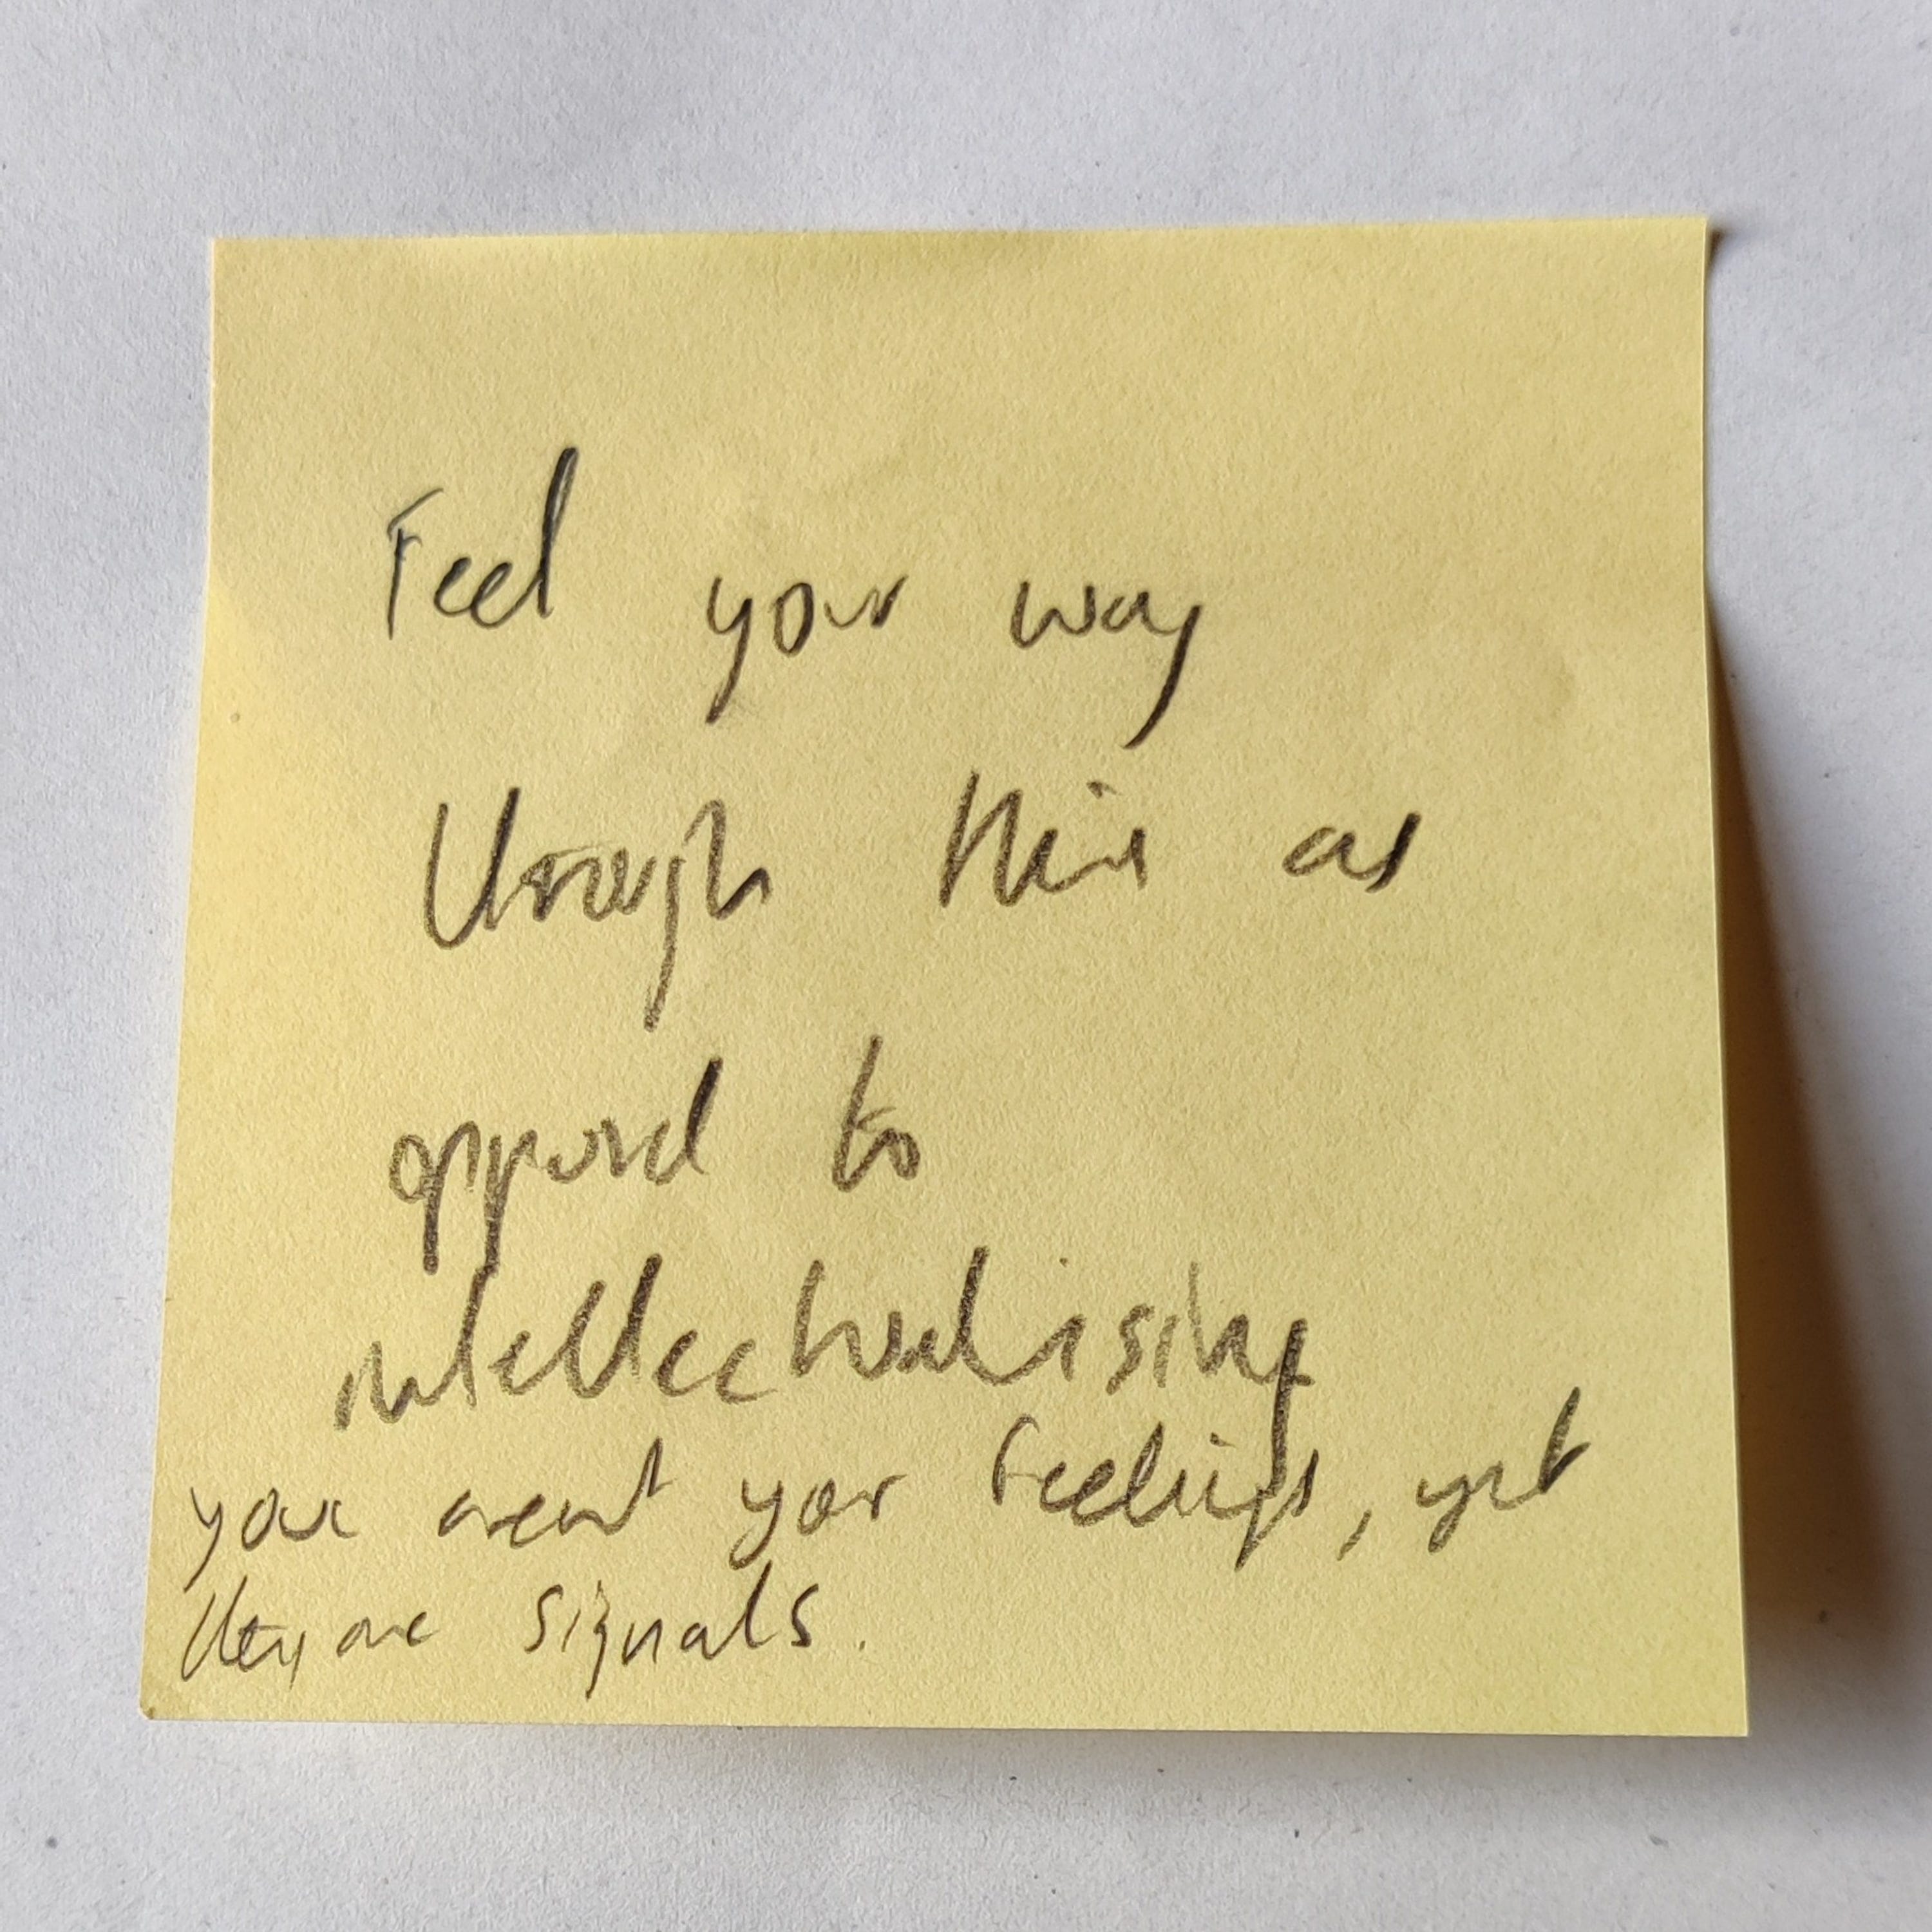 Feel your way
through this as
opposed to
intellectualising
you arent your feelings, yet
they are signals.